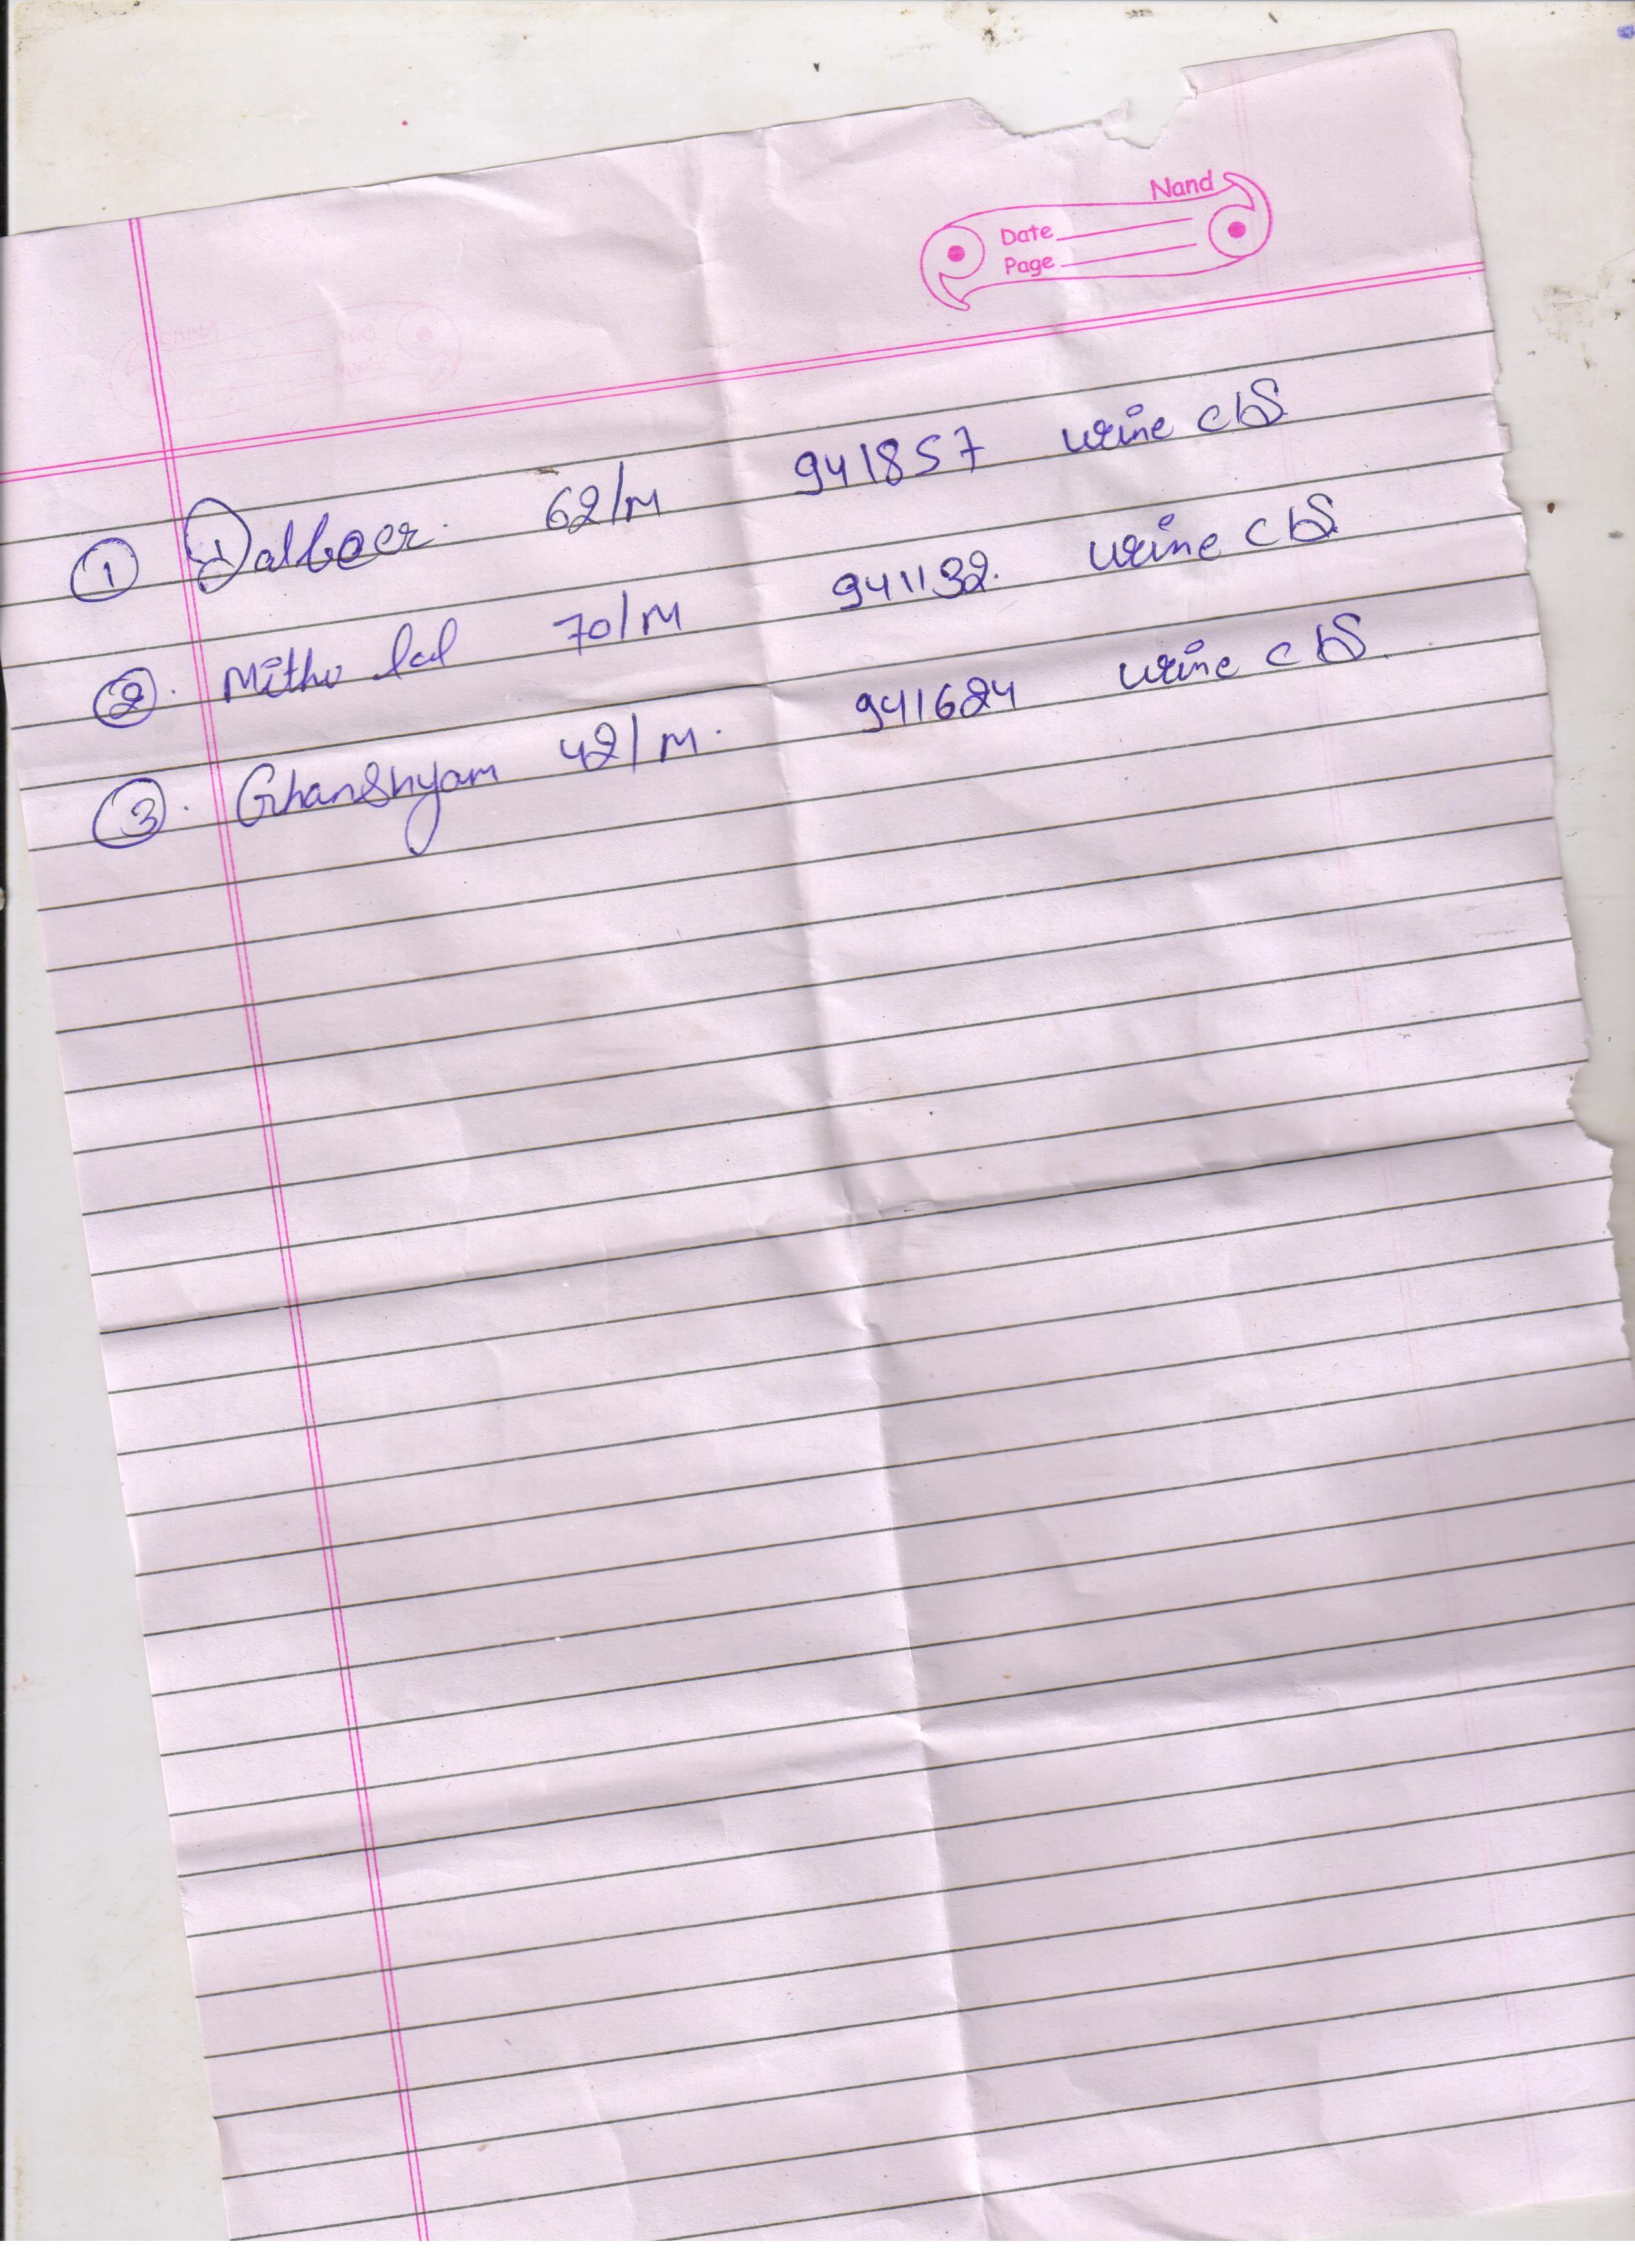 Nand
Date
Page
① Dalbeer. 62/M 941857 urine c/s
②. Mithu lal 70/M 941132. urine c/s
③. Ghanshyam 42/M. 941624 urine c/s.